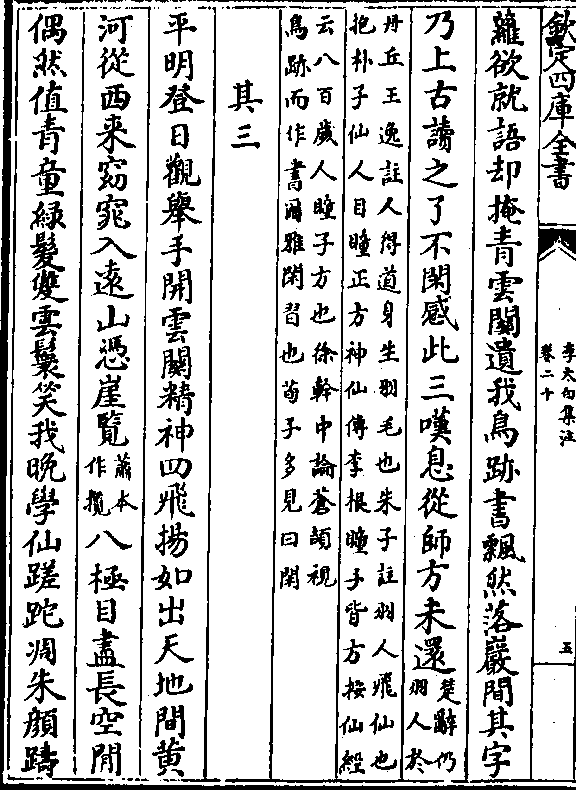 欽定四庫全書
李太白集注
卷二十
五
蘿欲就語却掩青雲闗遺我鳥跡書飄然落巖間其字
乃上古讀之了不閑感此三嘆息從師方未還楚辭仍羽人於
丹丘王逸註人得道身生羽毛也朱子註羽人飛仙也
抱朴子仙人目瞳正方神仙傳李根瞳子皆方按仙經
云八百歲人瞳子方也徐幹中論蒼頡視
鳥跡而作書爾雅閑習也荀子多見曰閑
其三
平明登日觀舉手開雲闗精神四飛揚如出天地間黄
河從西来窈窕入遠山憑崖覽蕭本作攬八極目盡長空閒
偶然值青童緑髮雙雲鬟笑我晚學仙蹉跎凋朱顔躊